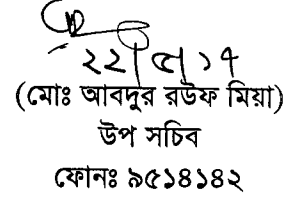 ২২/৫/১৭
(মোঃ আবদুর রউফ মিয়া)
উপ সচিব
ফোনঃ ৯৫১৪১৪২